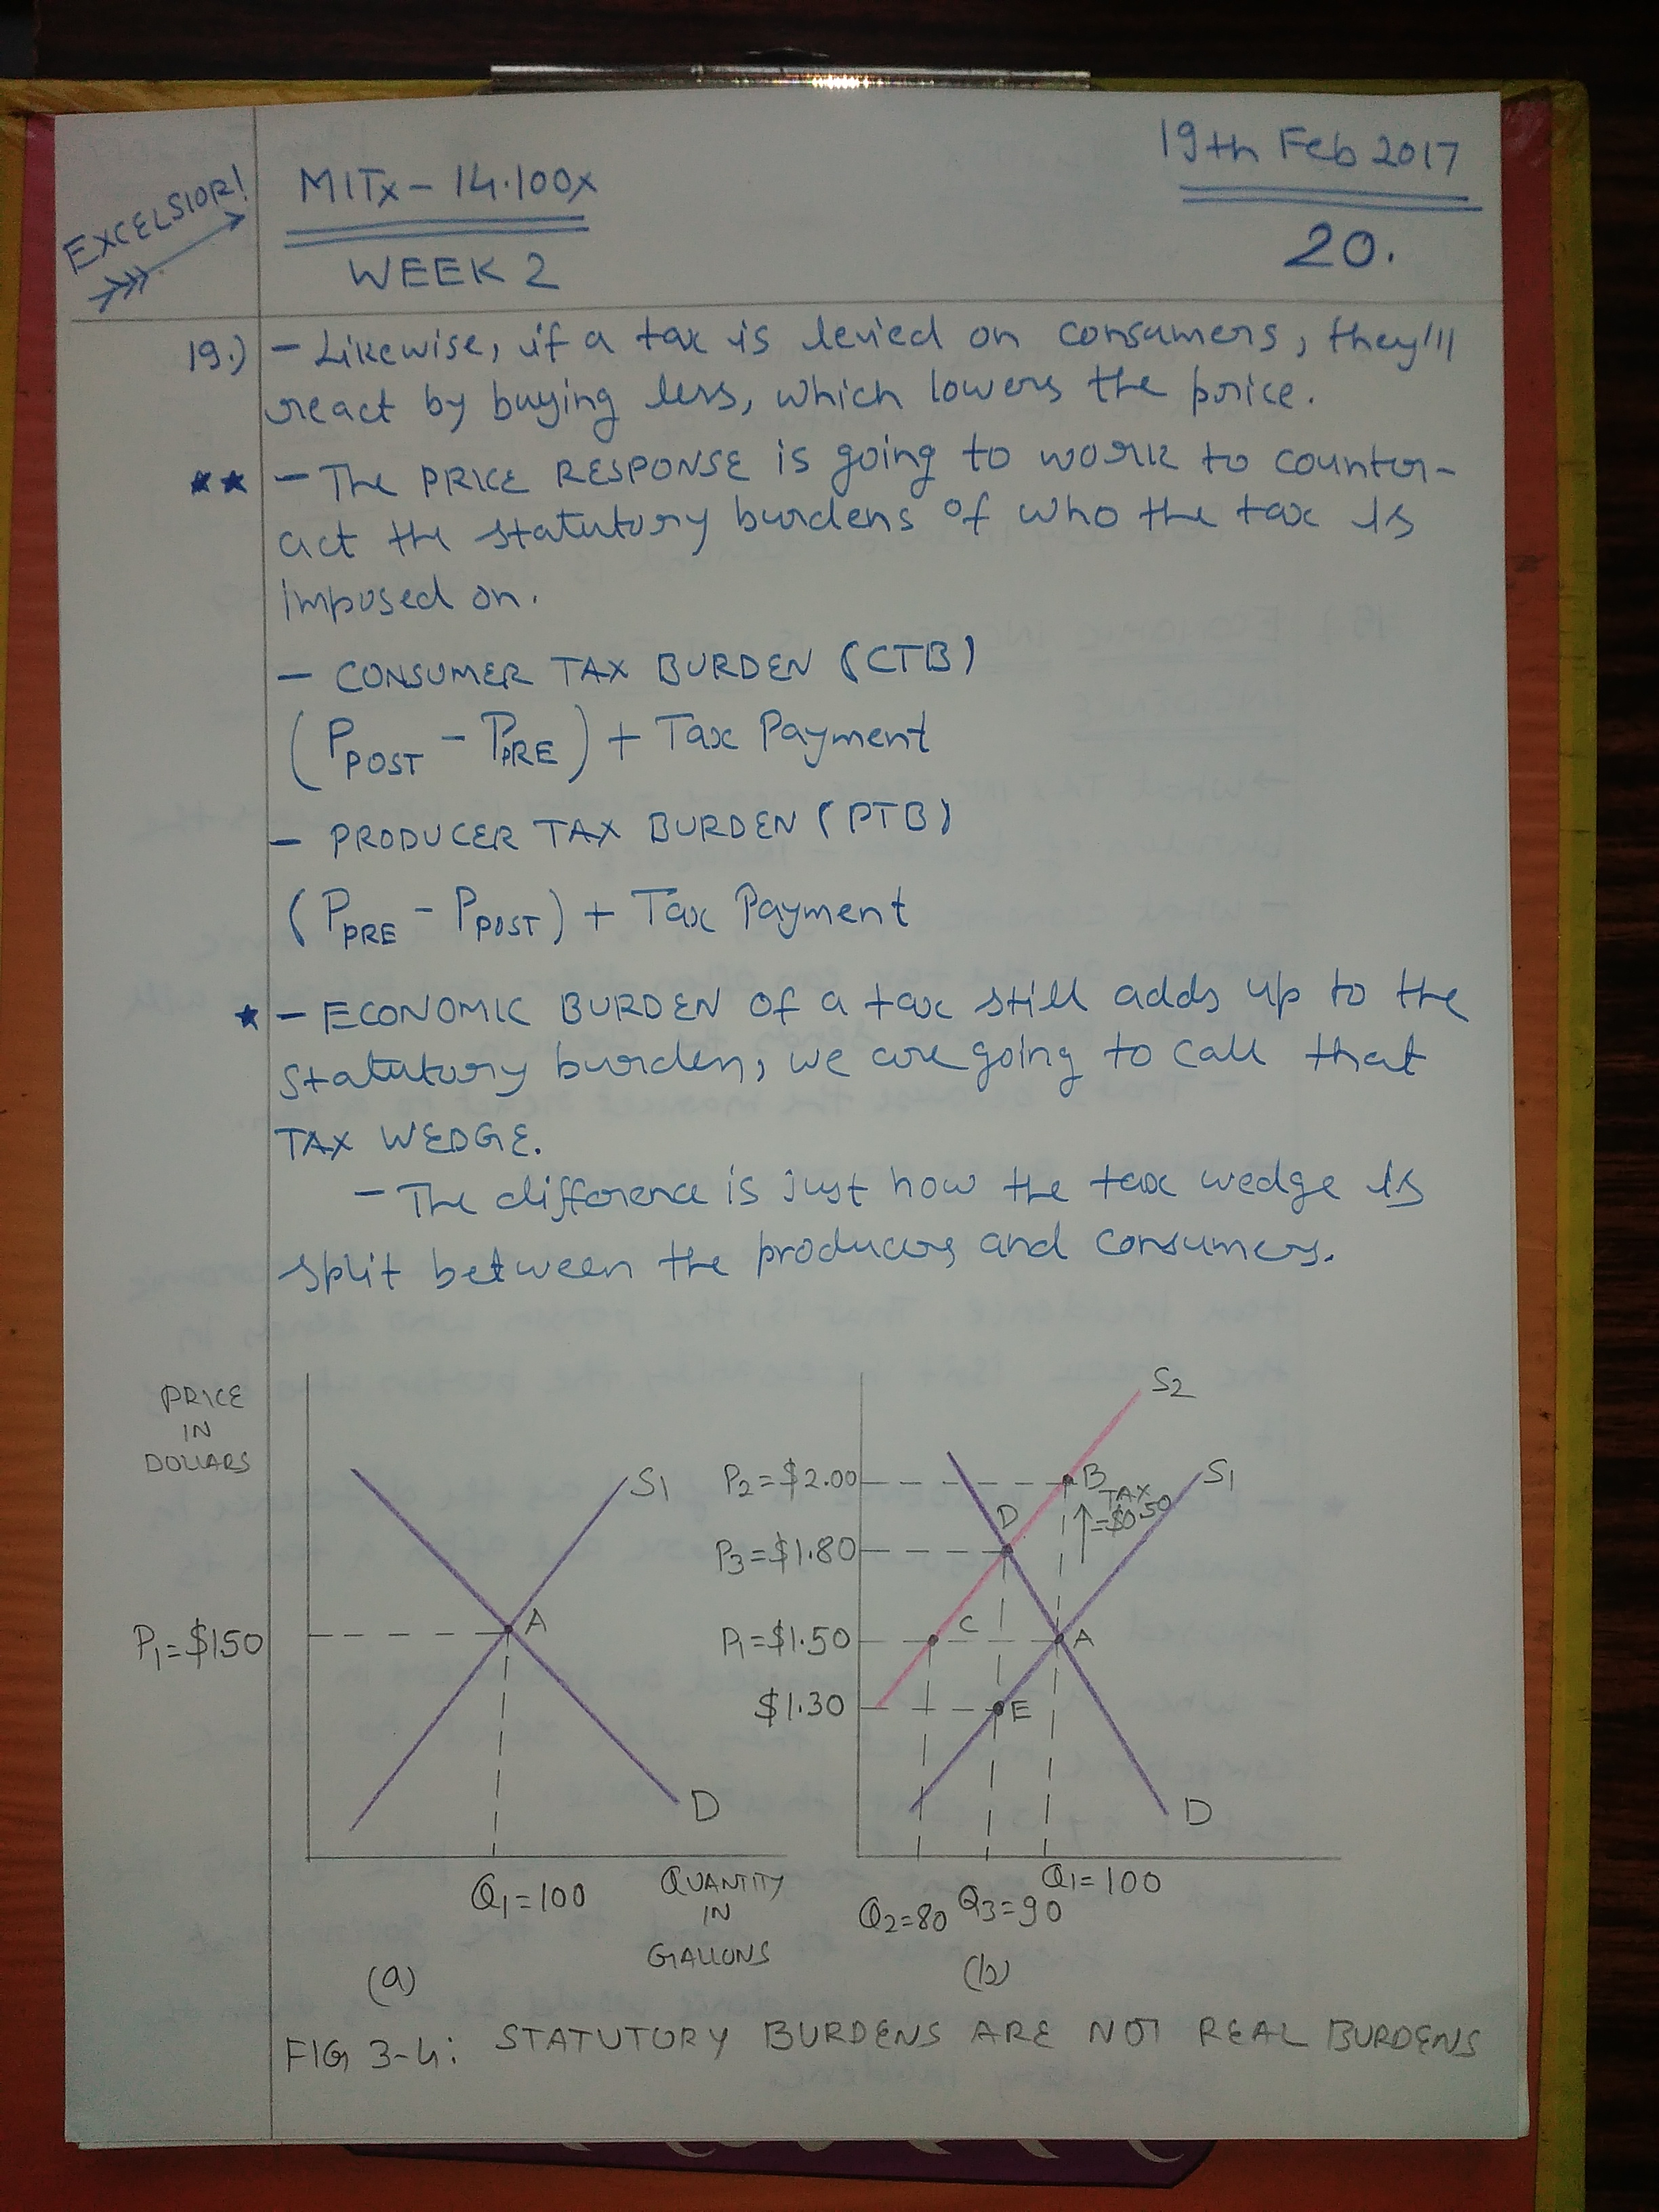 EXCELSIOR!
MITx - 14.100x
WEEK 2
19th Feb 2017
20.
19.) - Likewise, if a tax is levied on consumers, they'll
react by buying less, which lowers the price.
★★ - The PRICE RESPONSE is going to work to counter-
act the statutory burdens of who the tax is
imposed on.
- CONSUMER TAX BURDEN (CTB)
(P POST - P PRE) + Tax Payment
- PRODUCER TAX BURDEN (PTB)
(P PRE - P POST) + Tax Payment
★ - ECONOMIC BURDEN of a tax still adds up to the
statutory burden, we are going to call that
TAX WEDGE.
- The difference is just how the tax wedge is
split between the producers and consumers.
PRICE
IN
DOLLARS
S1
A
P1=$150
D
Q1=100
QUANTITY
IN
GALLONS
(a)
S2
P2=$2.00
B
S1
TAX
=$0.50
D
P3=$1.80
P1=$1.50
C
A
$1.30
E
D
Q1=100
Q2=80
Q3=90
(b)
FIG 3-4: STATUTORY BURDENS ARE NOT REAL BURDENS